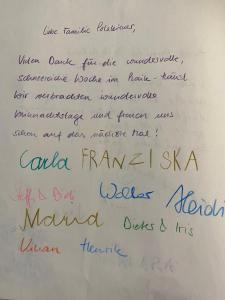 Liebe Familie
Vielen Dank für die wundervolle,
schneereiche Woche im
Wir verbrachten wundervolle
Weihnachtstage und freuen uns
schon auf das nächste Mal!
Carla FRANZISKA
Steffi & Didi Walter Heidi
Maria Dieter & Iris
Vivian Henrik